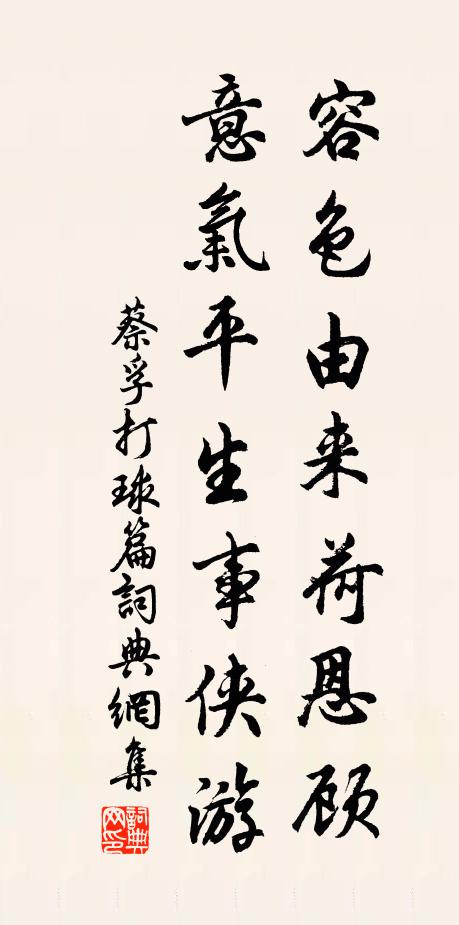 容色由来荷恩顾
意氣平生事侠游
蔡孚打球篇詞典網集
詞典網印